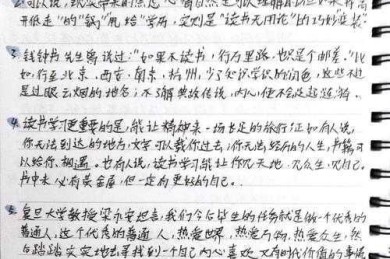 开低走"的"锅"甩给"学历,实则是"读书无用论"的巧妙变装"
3、钱钟书先生曾说过:"如果不读书,行万里路,也只是个邮差。"比
如,行至北京、西安、南京、杭州,少了知识学识的润色,这些不过
是过眼云烟的地名;不了解典故传说,内心便不会起涟漪。
4、读书学习更重要的是,能让精神来一场尽足的旅行,正如有人说,
你无法到达的地方,文字可以载你过去;你无法经历的人生,书籍可
以给你相遇。也有人说,读书学习能让你见天地、见众生、见自己。
书中未必有黄金屋,但一定有更好的自己。
5、复旦大学教授梁永安提出,我们今后毕生的任务就是做一个优秀的
普通人,这个优秀的普通人,热爱世界,热爱万物,热爱众生,然
后踏踏实实地去寻找到一个自己内心喜欢又有时代价值的事情